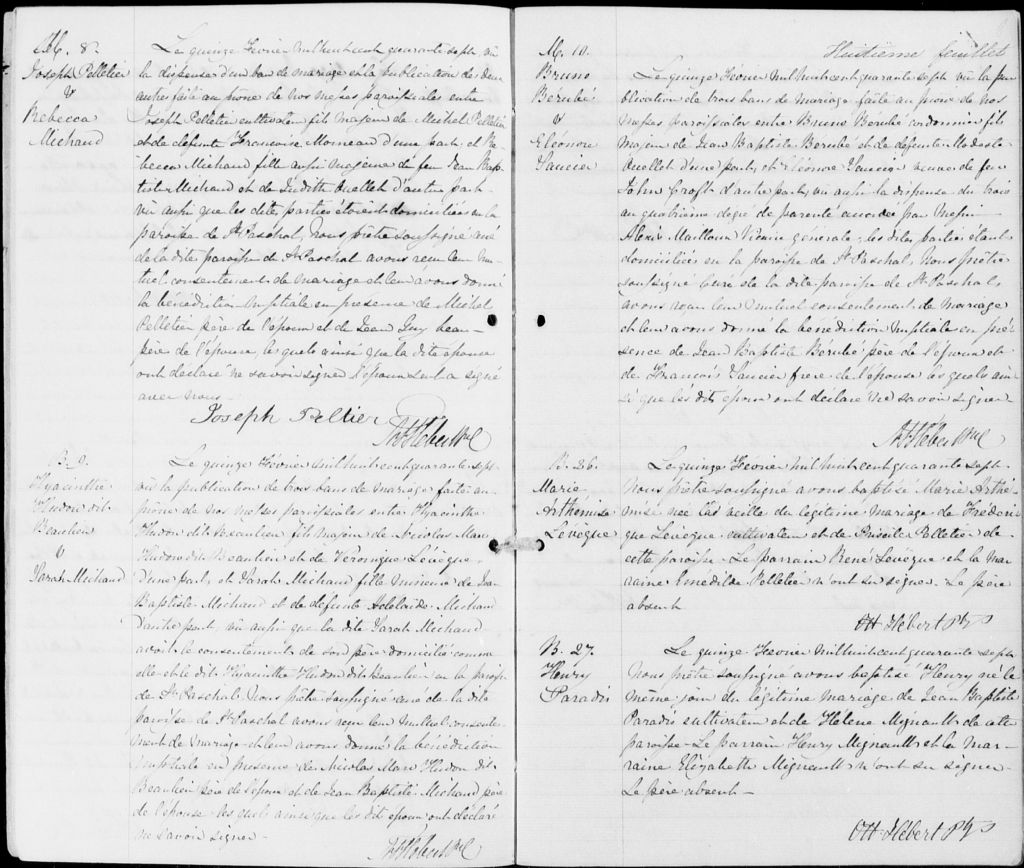 M. 8.
Joseph Pelletier
&
Rebecca
Michaud
Le quinze Février mil huit cent quarante sept, vû
la dispense d'un ban de mariage et la publication de deux
autres faite au prône de nos messes paroissiales entre
Joseph Pelletier cultivateur fils majeur de Michel Pelletier
et de défunte Françoise Morneau d'une part, et Re-
becca Michaud fille aussi majeure de feu Jean Bap-
tiste Michaud et de Judith Ouellet d'autre part
vû aussi que les dites parties étoient domiciliées en la
paroisse de St Paschal, Nous prêtre soussigné curé
de la dite paroisse de St Paschal avons reçu leur mu-
tuel consentement de mariage et leur avons donné
la bénédiction nuptiale en présence de Michel
Pelletier père de l'époux et de Jean Guy beau-
père de l'épouse, lesquels ainsi que la dite épouse
ont déclaré ne savoir signer l'époux seul a signé
avec nous
Joseph Pelletier
Hébert
Hyacinthe
Hudon dit
Beaulieu
&
Sarah Michaud
Le quinze Février mil huit cent quarante sept
vû la publication de trois bans de mariage faite au
prône de nos messes paroissiales entre Hyacinthe
Hudon dit Beaulieu fils majeur de Nicolas Marc
Hudon dit Beaulieu et de Véronique Lévêque
d'une part, et Sarah Michaud fille mineure de Jean
Baptiste Michaud et de défunte Adelaide Michaud
d'autre part, vû aussi que la dite Sarah Michaud
avoit le consentement de son père domiciliée comme
elle et le dit Hyacinthe Hudon dit Beaulieu en la paroisse
de St Paschal Nous prêtre soussigné curé de la dite
paroisse de St Paschal avons reçu leur mutuel consente-
ment de mariage et leur avons donné la bénédiction
nuptiale en présence de Nicolas Marc Hudon dit
Beaulieu père de l'époux et de Jean Baptiste Michaud père
de l'épouse lesquels ainsi que les dit époux ont déclaré
ne savoir signer -
Hébert
Huitième feuillet
M. 10.
Bruno
Bérubé
&
Eléonore
Saucier
Le quinze Février mil huit cent quarante sept vû la pu-
blication de trois bans de mariage faite au prône de nos
messes paroissiales entre Bruno Bérubé cordonnier fils
majeur de Jean Baptiste Bérubé et de défunte Modeste
Ouellet d'une part, et Eléonore Saucier veuve de feu
John Croft d'autre part, vû aussi la dispense du trois
au quatrième degré de parenté accordée par Messire
Alexis Mailloux Vicaire général, les dites parties étant
domiciliées en la paroisse de St Paschal, Nous prêtre
soussigné Curé de la dite paroisse de St Paschal,
avons reçu leur mutuel consentement de mariage
et leur avons donné la bénédiction nuptiale en pré-
sence de Jean Baptiste Bérubé père de l'époux et
de François Saucier frère de l'épouse lesquels ain-
si que les dits époux ont déclaré ne savoir signer -
Hébert
B. 26.
Marie
Arthémise
Lévêque
Le quinze Février mil huit cent quarante sept
Nous prêtre soussigné avons baptisé Marie Arthé-
mise née la veille du légitime mariage de Frédéri-
que Lévêque cultivateur et de Priscile Pelletier de
cette paroisse - Le parrain René Lévêque et la mar-
raine Emedilde Pelletier n'ont su signer. Le père
absent
Hébert Ptre
B. 27.
Henry
Paradis
Le quinze Février mil huit cent quarante sept
Nous prêtre soussigné avons baptisé Henry né le
même jour du légitime mariage de Jean Baptiste
Paradis cultivateur et de Hélène Mignault de cette
paroisse - Le parrain Henry Mignault et la mar-
raine Elizabeth Mignault n'ont su signer -
Le père absent -
Hébert Ptre